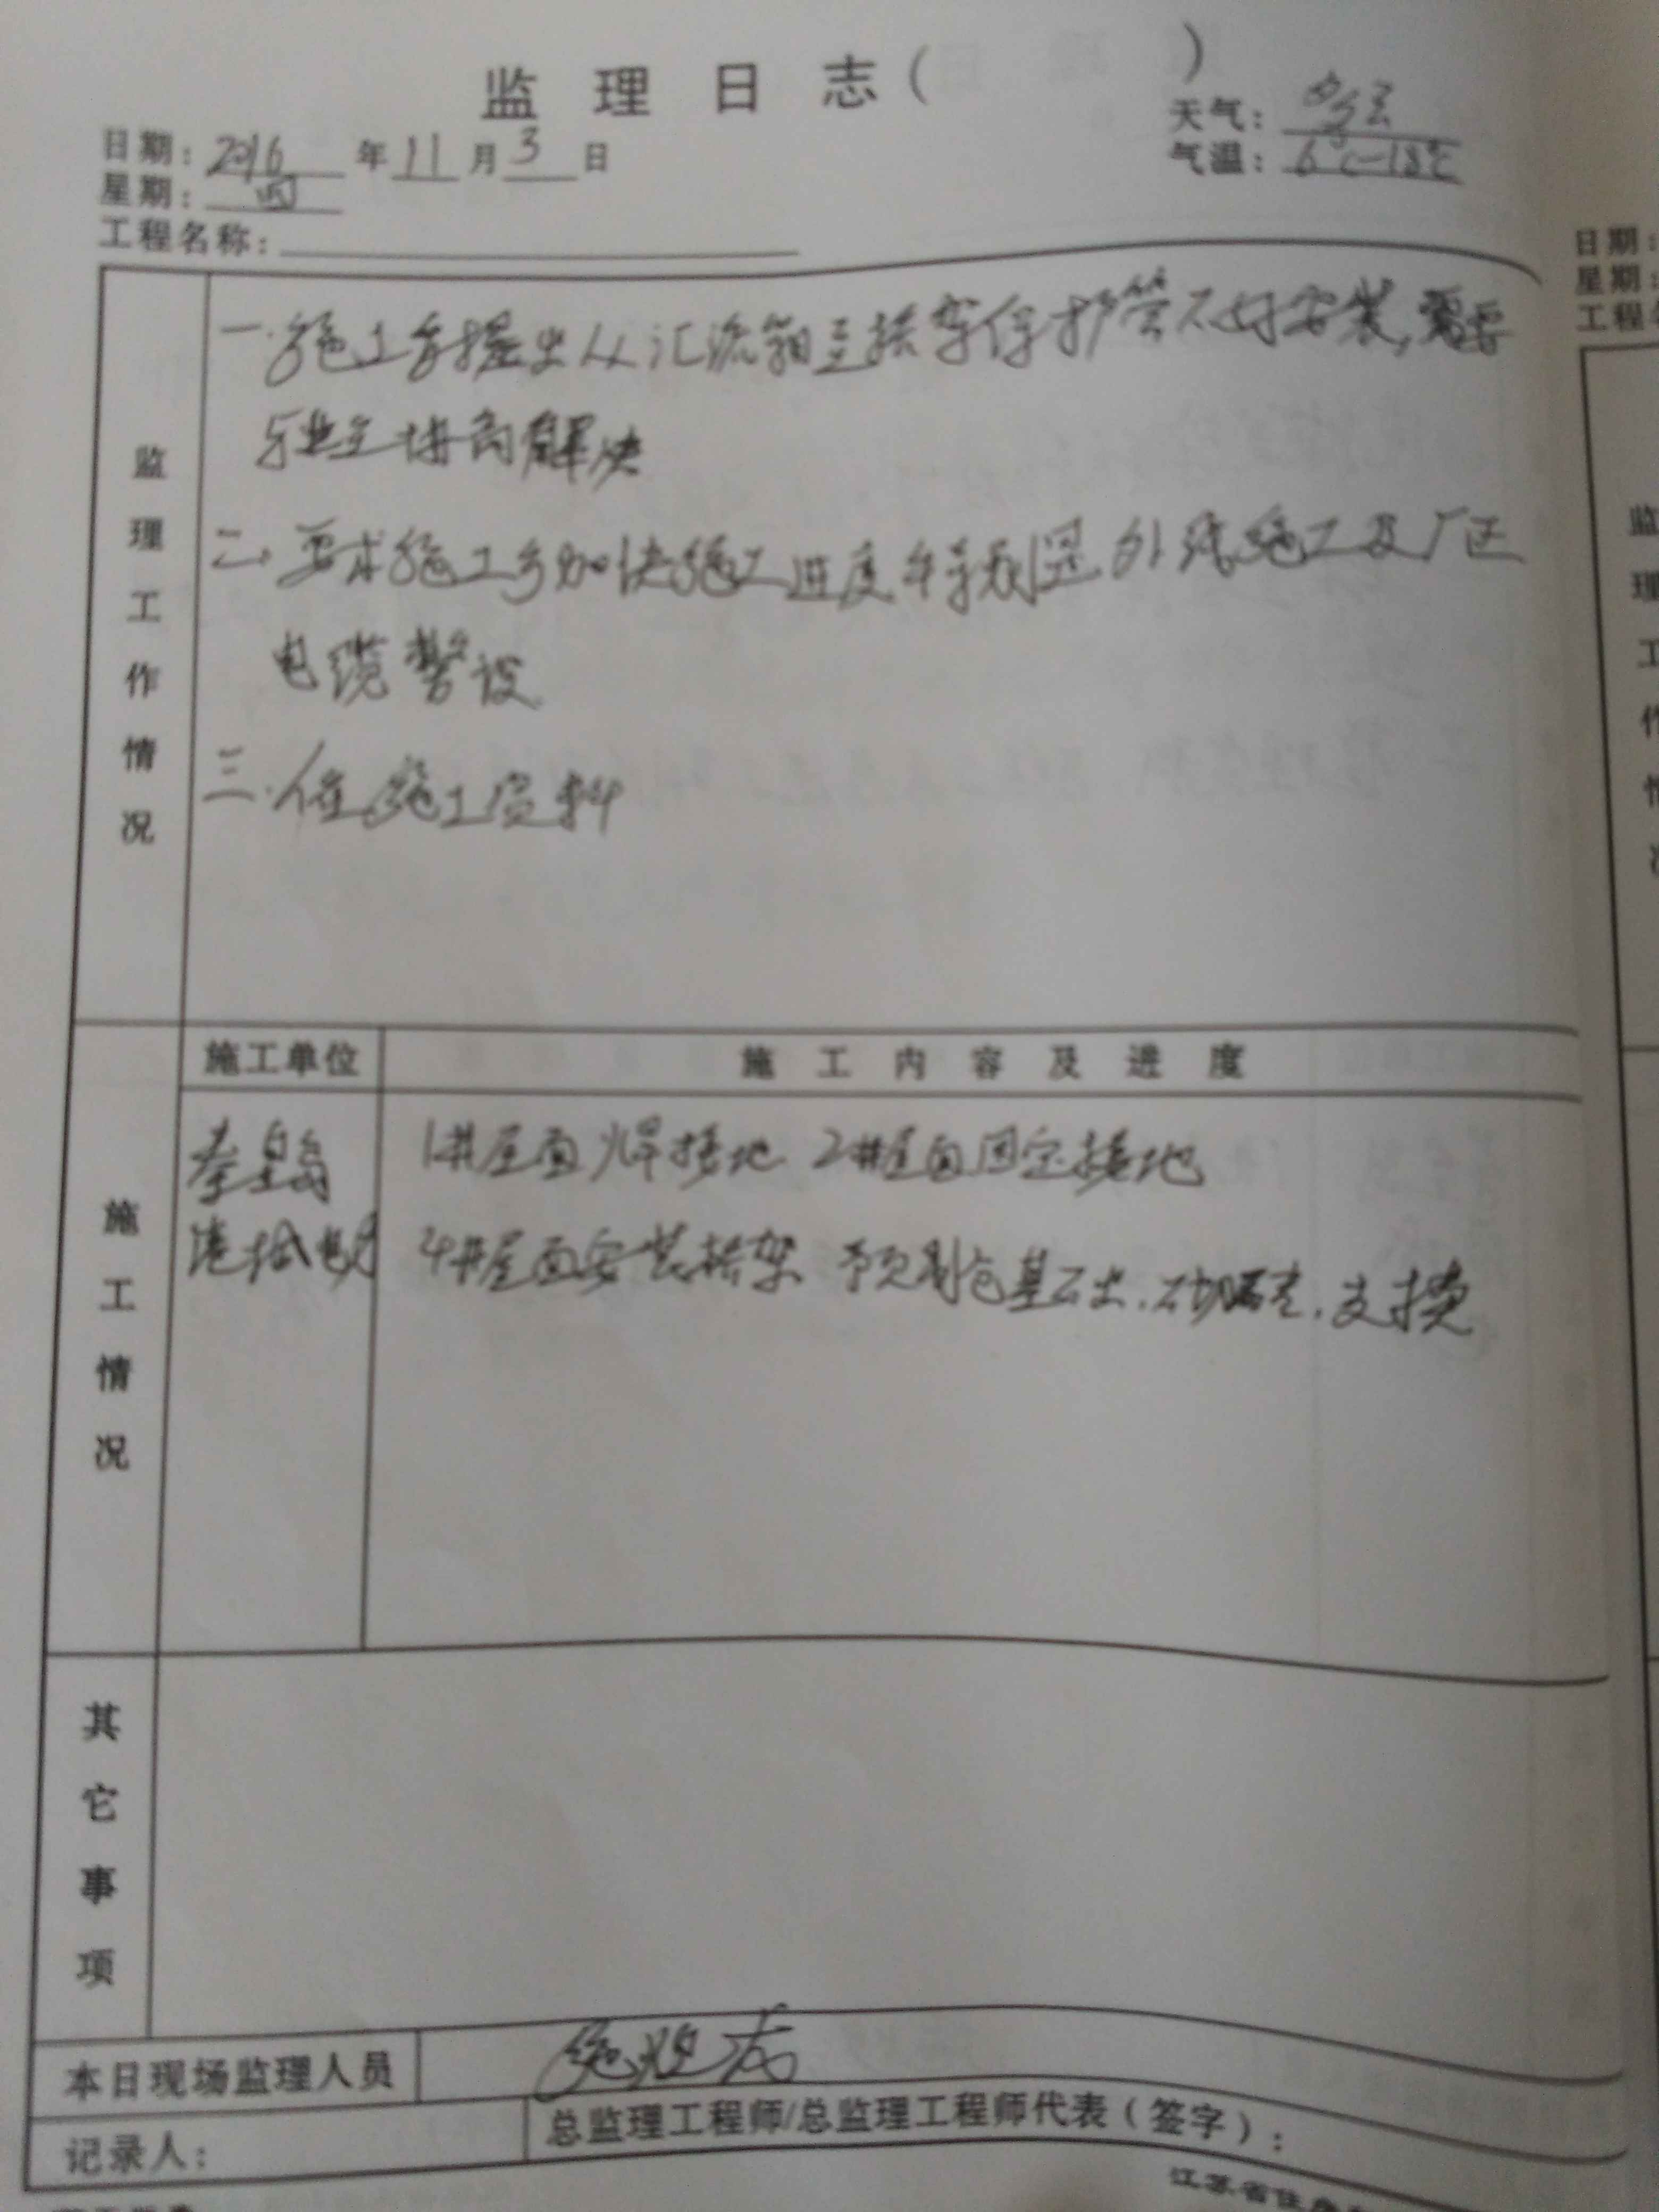 监理日志（ ）
日期：2016年11月3日
天气：多云
星期：四
气温：6℃-18℃
工程名称：
监理工作情况
一.施工方提出从汇流箱至桥架保护管不好安装,需要
与业主协商解决
二、要求施工方加快施工进度特别是外线施工及厂区
电缆敷设
三.催施工资料
施工情况
施工单位
施工内容及进度
秦皇岛
港扬电力
1#屋面焊接地 2#屋面固定接地
4#屋面安装桥架 预制仓基础.砌砖.支模
其它事项
本日现场监理人员
记录人：
总监理工程师/总监理工程师代表（签字）：
江苏省住房
日期：
星期：
工程名
监理工作情况